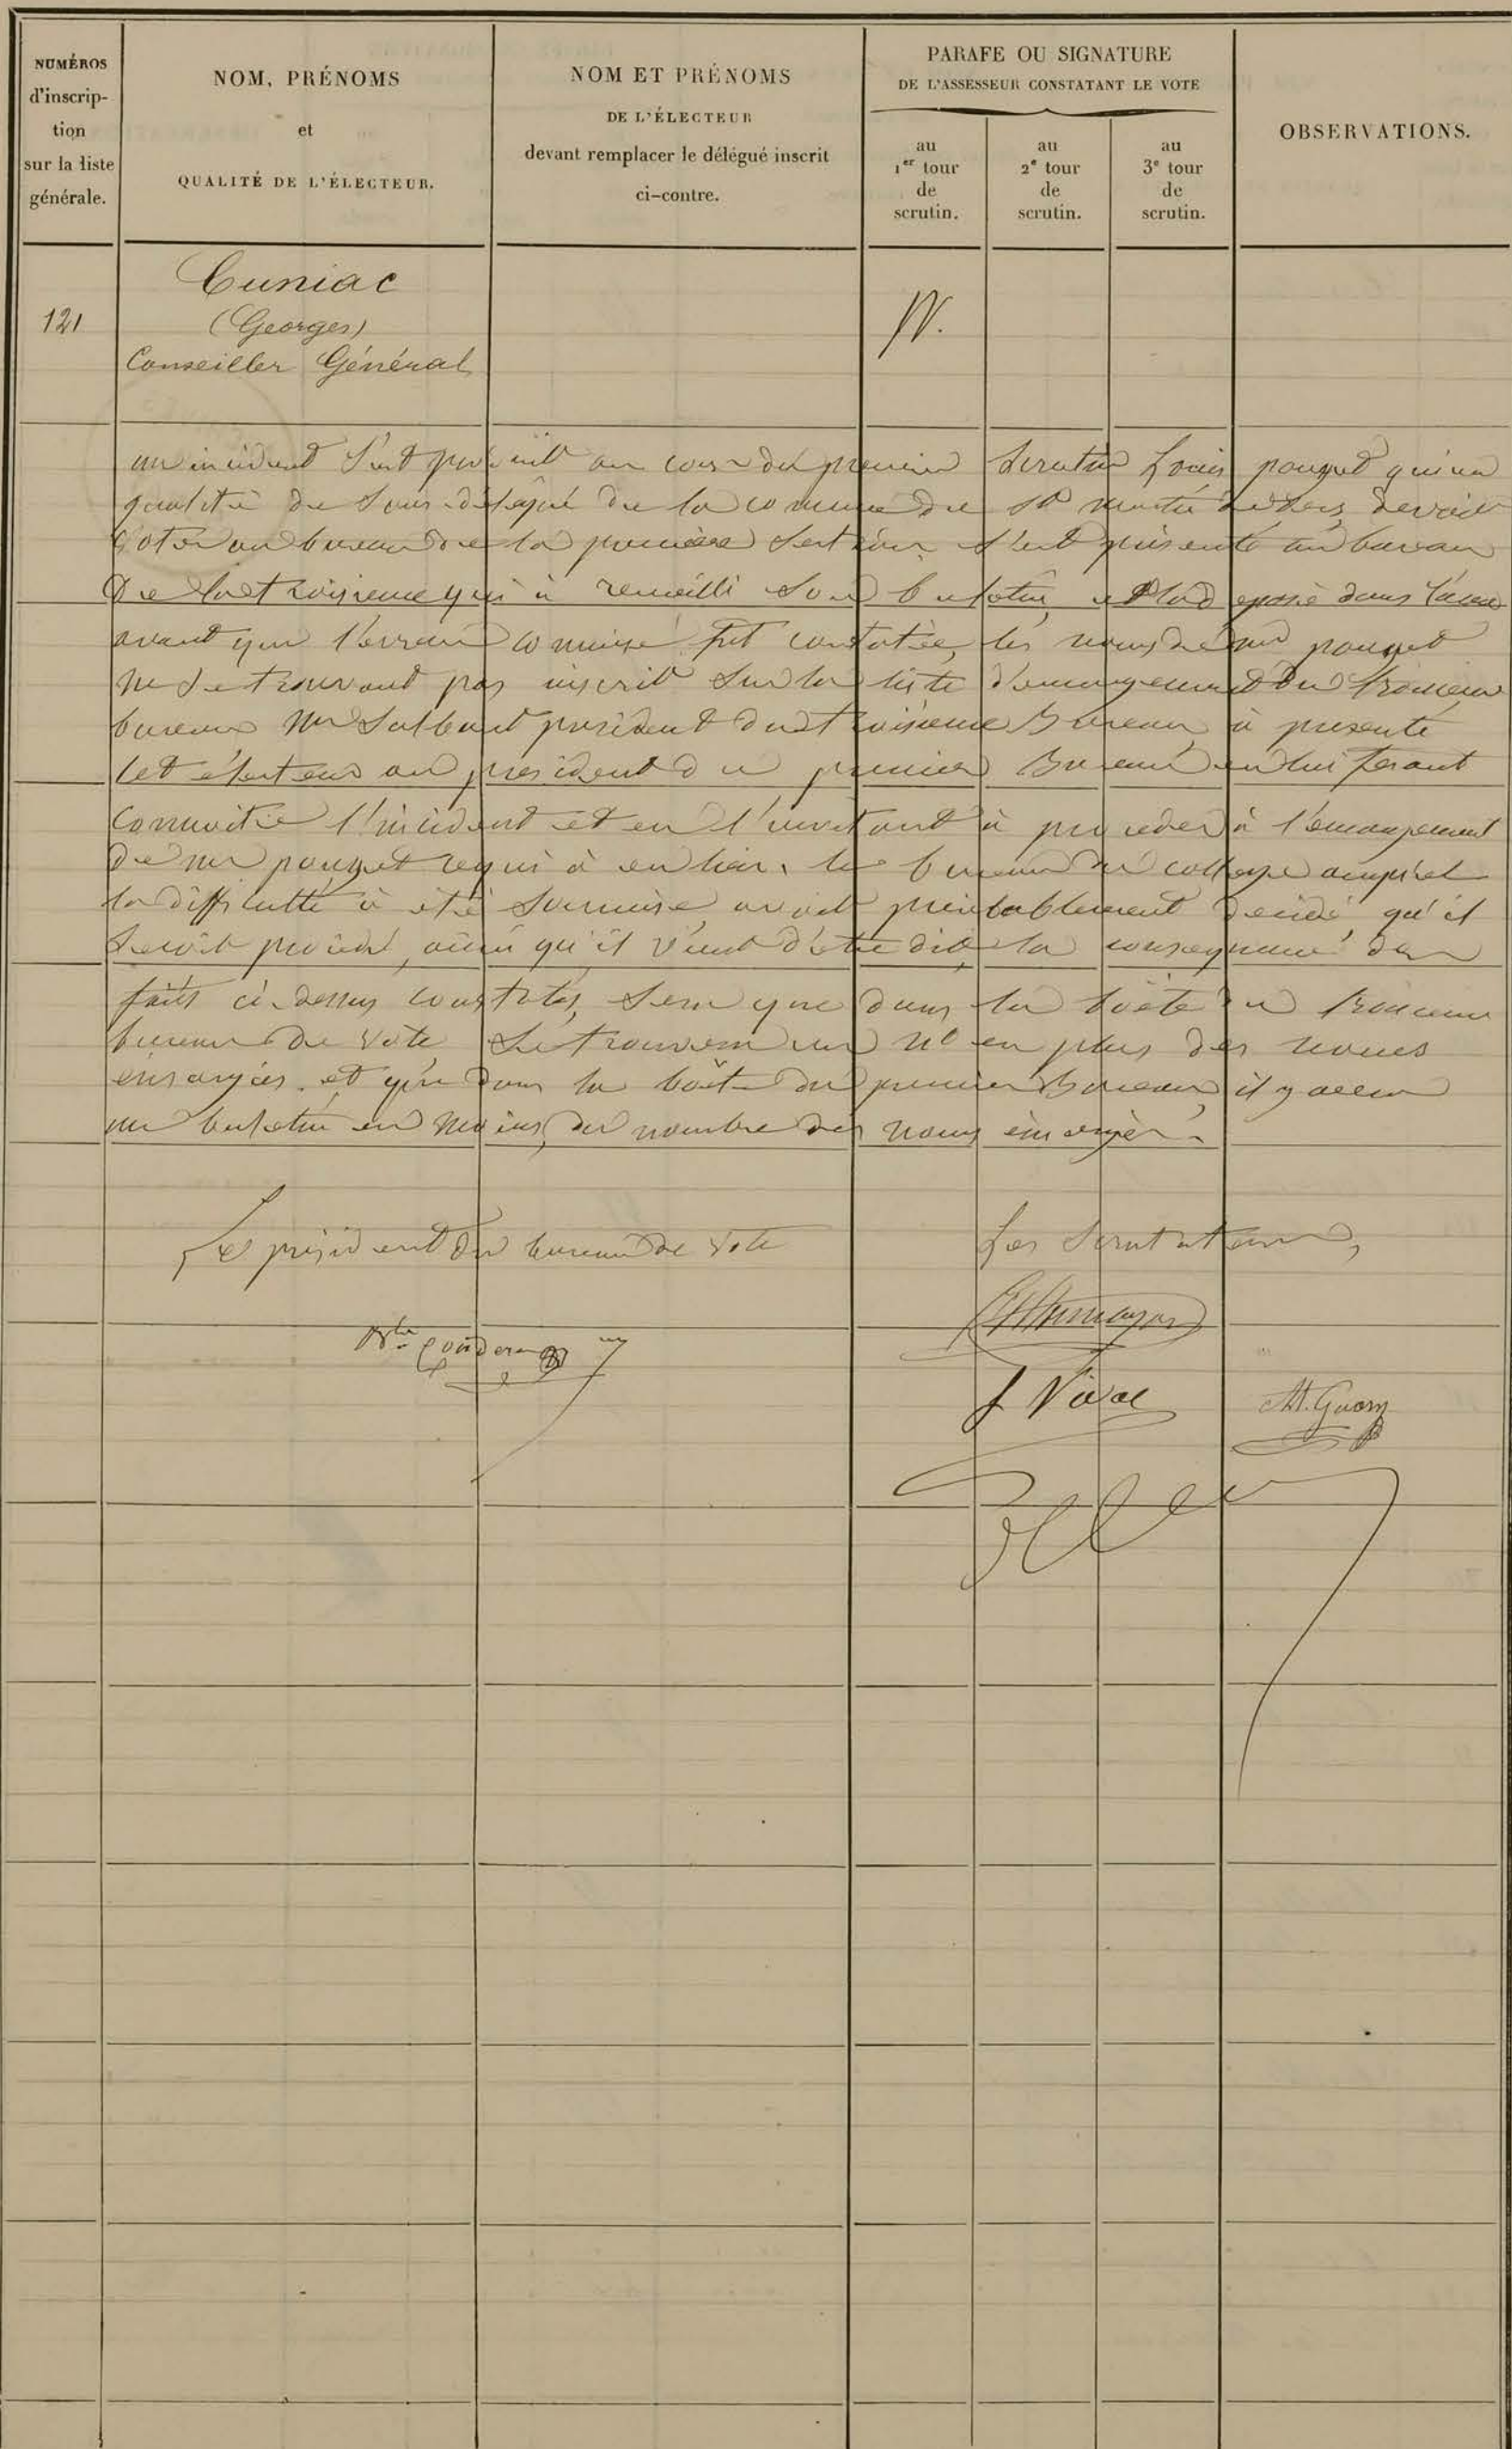 NUMÉROS
d'inscrip-
tion
sur la liste
générale.
NOM, PRÉNOMS
et
QUALITÉ DE L'ÉLECTEUR.
NOM ET PRÉNOMS
DE L'ÉLECTEUR
devant remplacer le délégué inscrit
ci-contre.
PARAFE OU SIGNATURE
DE L'ASSESSEUR CONSTATANT LE VOTE
au
1er tour
de
scrutin.
au
2e tour
de
scrutin.
au
3e tour
de
scrutin.
OBSERVATIONS.
121
Cuniac
(Georges)
Conseiller Général
un incident s'est produit au cours du premier scrutin Louis pouget qui en
qualité de sous-délégué de la commune de St devait
voter au bureau de la première section s'est présenté au bureau
De la troisieme qui à recueilli son bulletin, et l'a déposé dans l'urne
avant que l'erreur commise fut constatée, les noms de mr pouget
ne se trouvant pas inscrit sur la liste d'emargement du troisieme
bureau Mr président du troisieme Bureau, à presenté
cet électeur au président du premier Bureau en lui ferant
connaitre l'incident et en l'invitant à proceder à l'emargement
de mr pouget ce qui à eu lieu. le bureau du college auquel
la difficulté à été soumise avait préalablement décidé qu'il
serait procédé, ainsi qu'il vient d'être dit, la consequence des
faits ci-dessus constatés, sera que dans la boête du troisieme
bureau de vote se trouvera un en plus des noms
emargés. et que dans la boête du premier Bureau il y aura
un bulletin en moins, du nombre des noms émargés.
Le président du bureau de vote
Les Scrutateurs,
J Vival
M. Guary